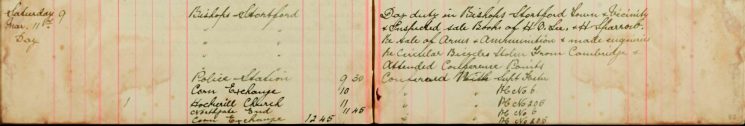 Saturday 9
Mar. 11th
Day
Bishops Stortford
" "
" "
" "
" "
Police Station 9 30
Corn Exchange 10
1 Hockerill Church 11
Northgate End 11 45
Corn Exchange 12 45
Day duty in Bishops Stortford Town & Vicinity
& Inspected Sale Books of H. B. Lee, & H. Sparrow.
Re Sale of Arms & Ammunition & made enquiries
Re Circular Bicycles Stolen From Cambridge &
Attended Conference Points
Conferred With Supt Foster
" PC No 6
" PC No 205
" PC No 6
" PC No 205